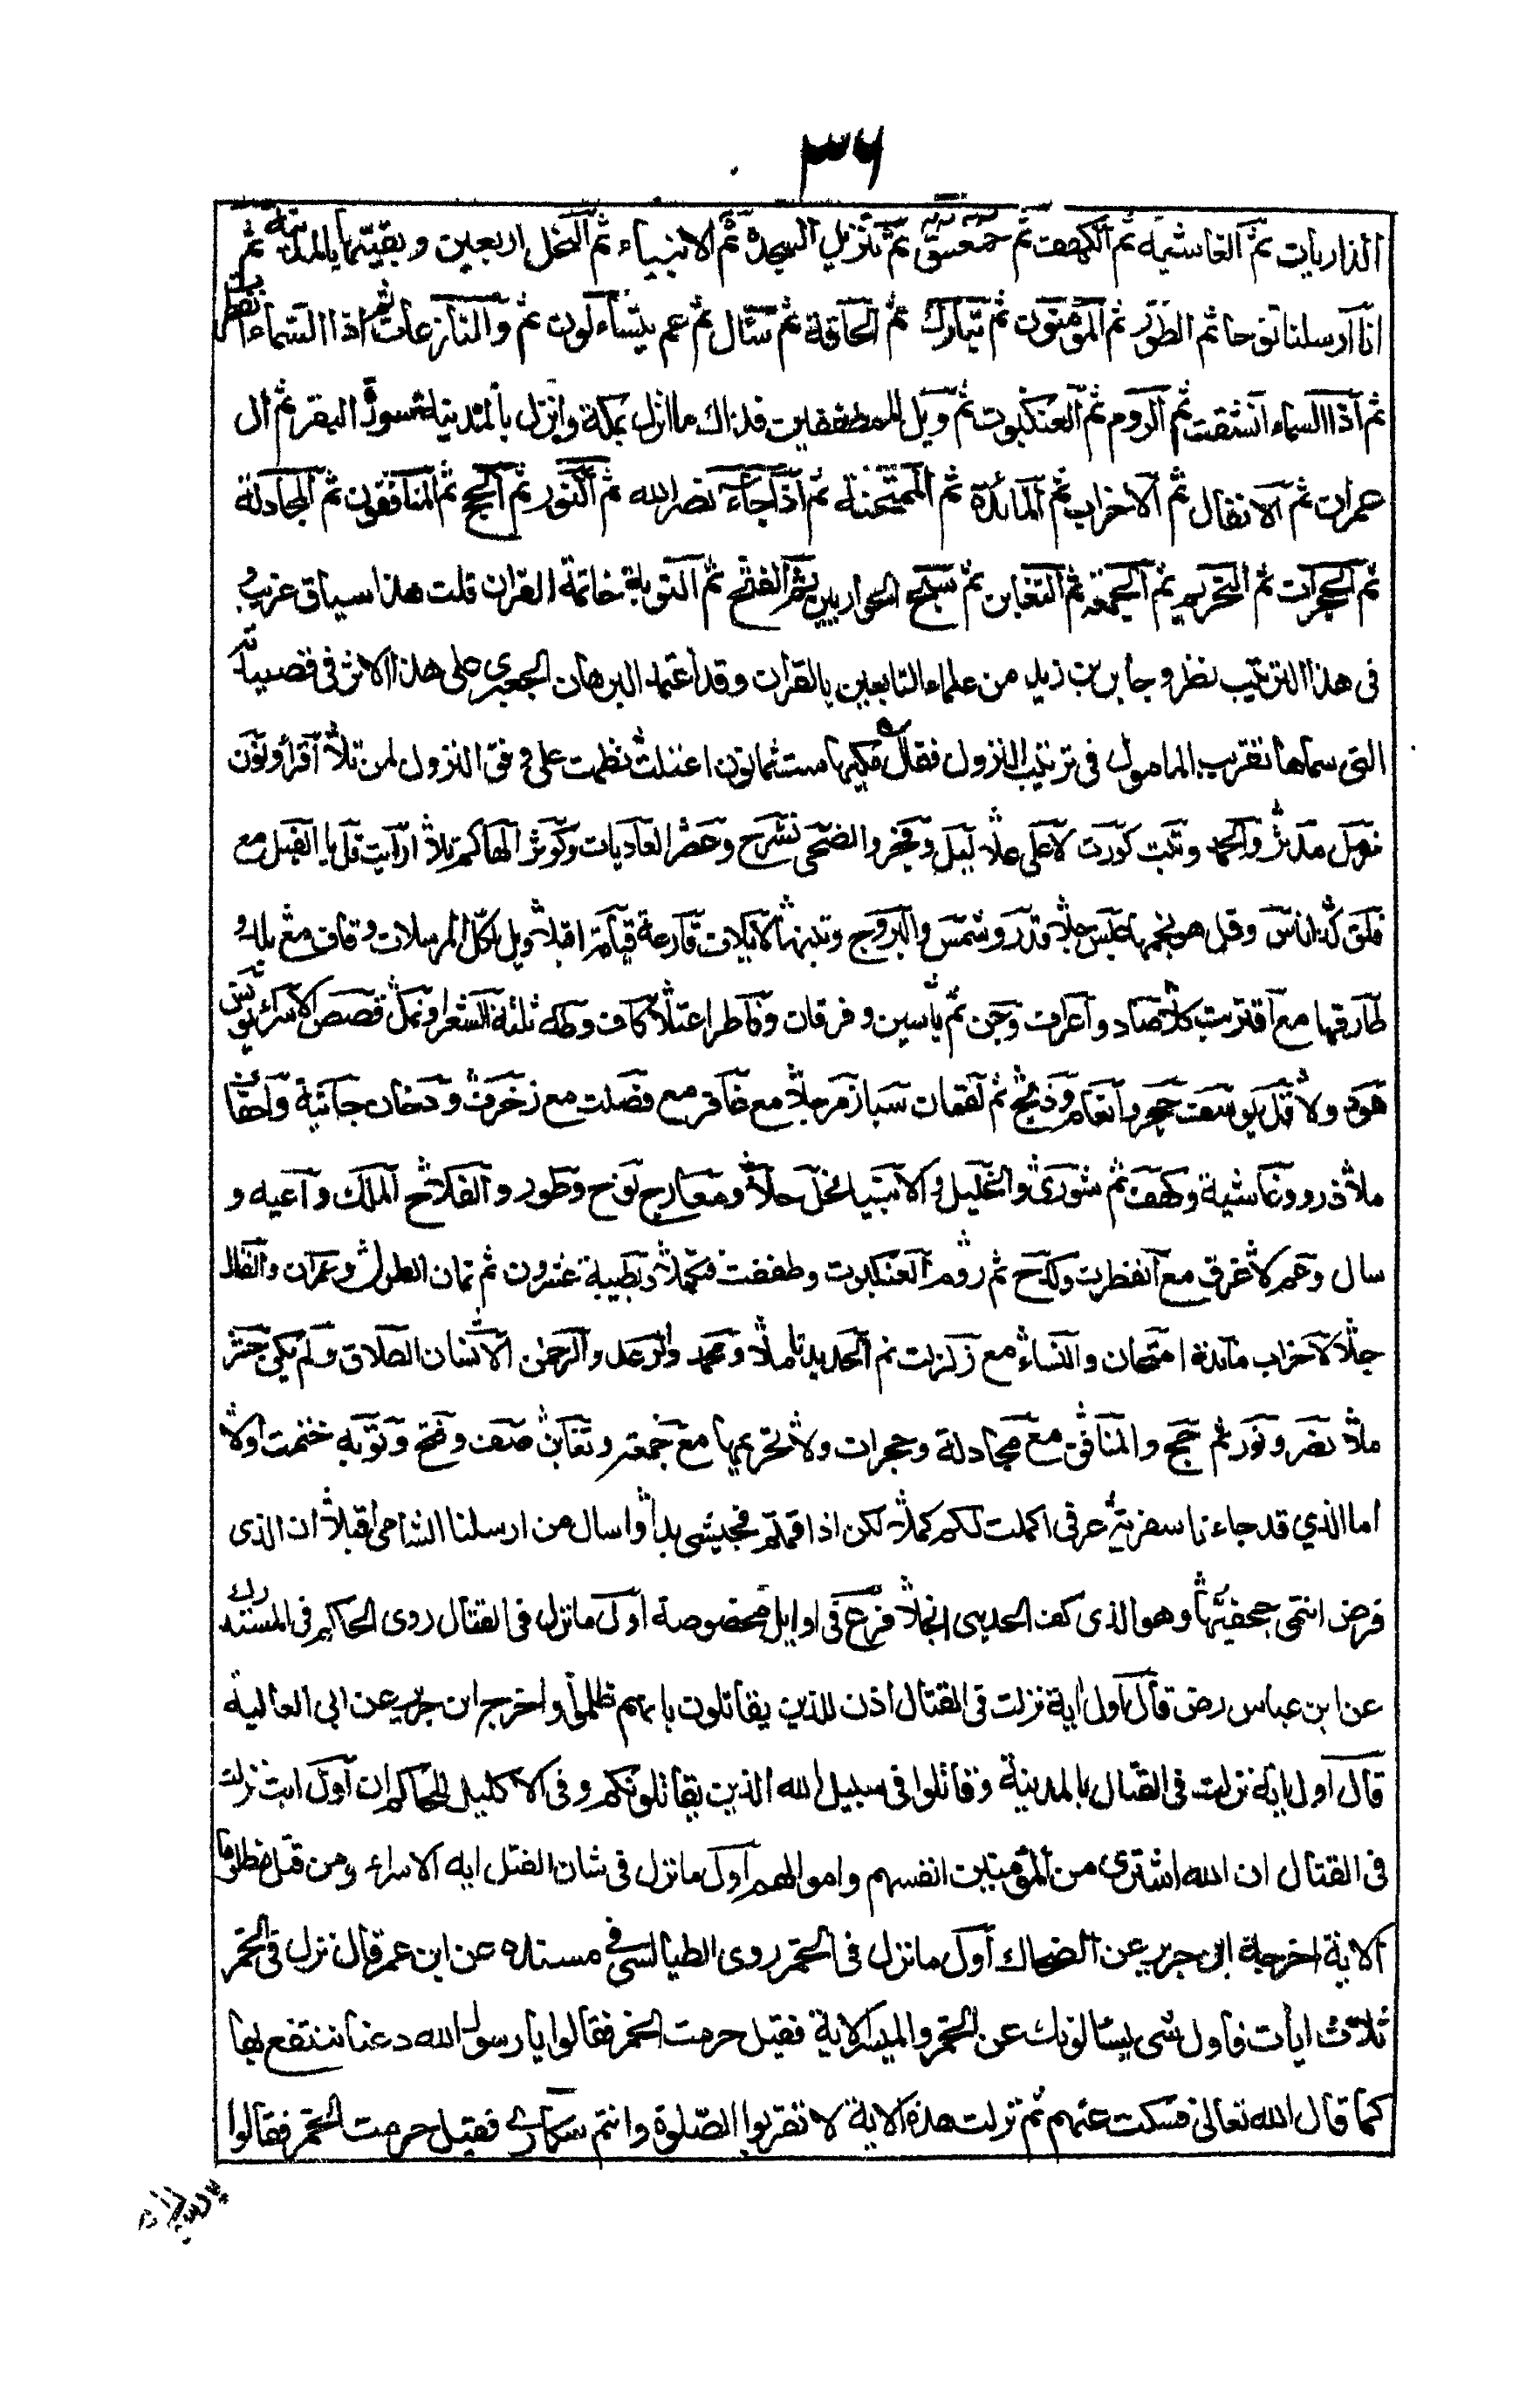 ٣٦
الذاريات ثم الغاشية ثم الكهف ثم حمعسق ثم تنزيل السجدة ثم الانبياء ثم النخل اربعين وبقيتها بالمدينة ثم
انا ارسلنا نوحا ثم الطور ثم المؤمنون ثم تبارك ثم الحاقة ثم سئال ثم عم يتساءلون ثم والنازعات ثم اذا السماء انفطرت
ثم اذا السماء انشقت ثم الروم ثم العنكبوت ثم ويل للمطففين فذاك ما انزل بمكة وانزل بالمدينة سورة البقر ثم ال
عمران ثم الانفال ثم الاحزاب ثم المائدة ثم الممتحنة ثم اذا جاء نصر الله ثم النور ثم الحج ثم المنافقون ثم المجادلة
ثم الحجرات ثم التحريم ثم الجمعة ثم التغابن ثم سبح الحواريين ثم الفتح ثم التوبة خاتمة القران قلت هذا سياق غريب و
فى هذا الترتيب نظر وجابر بن زيد من علماء التابعين بالقران وقد اعتمد البرهان الجعبرى على هذا الاثر فى قصيدته
التى سماها تقريب المامول فى ترتيب النزول فقال مكيها ست ثمانون اعتلت نظمت على وفق النزول لمن تلا اقرأ ونون
مزمل مدثر والحمد وتبت كورت لاعلى علا ليل وفجر والضحى نشرح وعصر العاديات وكوثر الهاكم تلا ارايت قل يا الفيل مع
فلق كذا ناس وقل هو نجمها عبس جلا قدر وشمس والبروج وتينها لايلاف قارعة قيامة اقبلا ويل لكل المرسلات وقاف مع بلد و
طارقها مع اقتربت كلا صاد واعراف وجن ثم ياسين وفرقان وفاطر اعتلا كاف وطه ثلثة الشعرا ونمل قصص الاسرا يونس
هود ولا قل يوسف حجر وانعام وذبح ثم لقمان سبا زمر جلا مع غافر مع فصلت مع زخرف ودخان جاثية واحقاف
ملا ذرو وغاشية وكهف ثم شورى والخليل والانبيا نخل حلا ومعارج نوح وطور والفلاح الملك واعيه و
سال وعم لا غرق مع انفطرت وكدح ثم روم العنكبوت وطففت فتكملا وبطيبة عشرون ثم ثمان الطول وعمران وانفال
جلا لاحزاب مائدة امتحان والنساء مع زلزلت ثم الحديد تاملا ومحمد والرعد والرحمن الانسان الطلاق ولم يكن حشر
ملا نصر ونور ثم حج والمنافق مع مجادلة وحجرات ولا تحريمها مع جمعة وتغابن صف وفتح وتوبه ختمت اولا
اما الذي قد جاءنا سفرية عرفى اكملت لكم كملا لكن اذا قمتم فجيشى بدا واسال من ارسلنا الشامى اقبلا ان الذى
فرض انتمى جحفيها وهو الذى كف الحديبى انجلا فرع فى اوايل مخصوصة اول ما نزل فى القتال روى الحاكم فى المستدرك
عن ابن عباس رض قال اول اية نزلت فى القتال اذن للذين يقاتلون بانهم ظلموا واخرج ابن جرير عن ابى العالية
قال اول اية نزلت فى القتال بالمدينة وقاتلوا فى سبيل الله الذين يقاتلونكم وفى الاكليل للحاكم ان اول اية نزلت
فى القتال ان الله اشترى من المؤمنين انفسهم واموالهم اول ما نزل فى شان القتل ايه الاسراء ومن قتل مظلوما
الاية اخرجه ابن جرير عن الضحاك اول ما نزل فى الخمر روى الطيالسى فى مسنده عن ابن عمر قال نزل فى الخمر
ثلاث ايات فاول شى يسالونك عن الخمر والميسر الاية فقيل حرمت الخمر فقالوا يا رسول الله دعنا ننتفع بها
كما قال الله تعالى فسكت عنهم ثم نزلت هذه الاية لا تقربوا الصلوة وانتم سكارى فقيل حرمت الخمر فقالوا